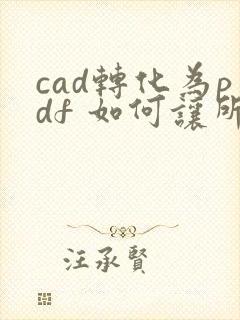 cad轉化為p
df 如何讓所
汪承賢